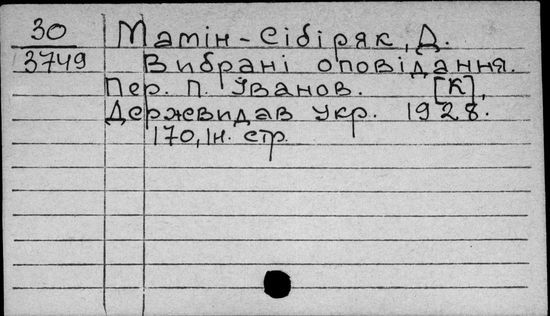 30 Мамін-Сібіряк, Д.
3749 Вибрані оповідання.
Пер. П. Іванов. [К],
Держвидав Укр. 1928.
170, 1н. стр.